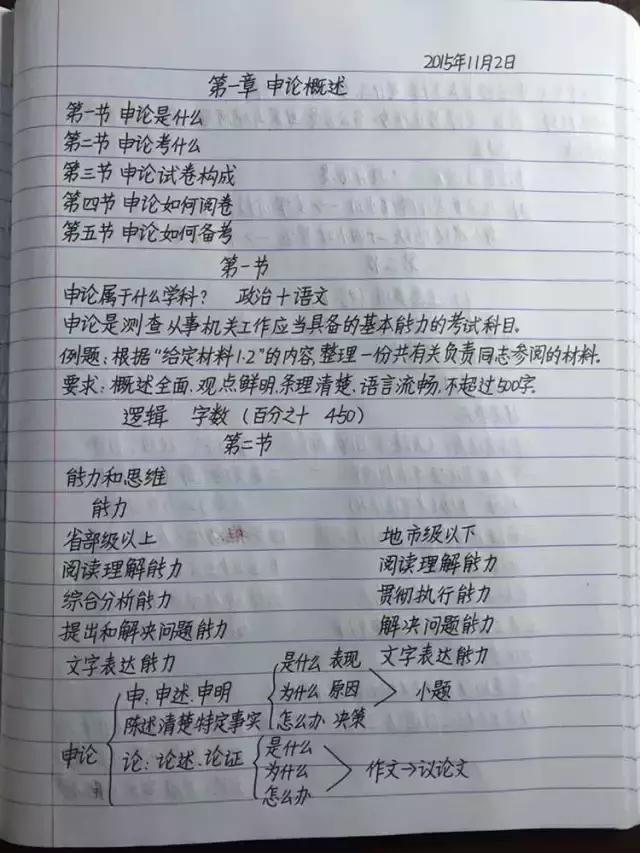 2015年11月2日
第一章 申论概述
第一节 申论是什么
第二节 申论考什么
第三节 申论试卷构成
第四节 申论如何阅卷
第五节 申论如何备考
第一节
申论属于什么学科? 政治+语文
申论是测查从事机关工作应当具备的基本能力的考试科目。
例题:根据"给定材料1.2"的内容,整理一份共有关负责同志参阅的材料。
要求:概述全面、观点鲜明、条理清楚、语言流畅,不超过500字。
逻辑 字数(百分之十 450)
第二节
能力和思维
能力
省部级以上 地市级以下
阅读理解能力 阅读理解能力
综合分析能力 贯彻执行能力
提出和解决问题能力 解决问题能力
文字表达能力 文字表达能力
申论
申:申述、申明
陈述清楚特定事实
是什么 表现
为什么 原因
怎么办 决策
小题
论:论述、论证
是什么
为什么
怎么办
作文→议论文